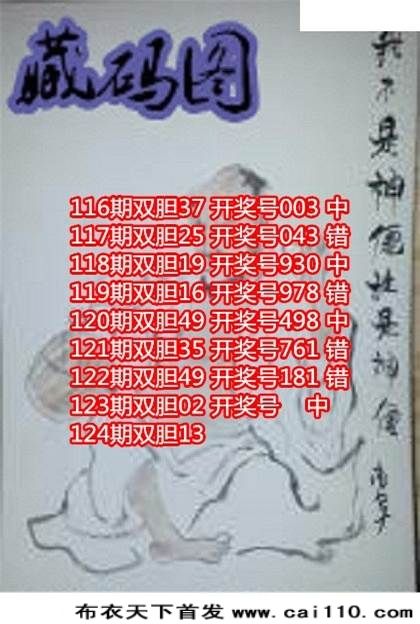 藏码图
116期双胆37 开奖号003 中
117期双胆25 开奖号043 错
118期双胆19 开奖号930 中
119期双胆16 开奖号978 错
120期双胆49 开奖号498 中
121期双胆35 开奖号761 错
122期双胆49 开奖号181 错
123期双胆02 开奖号 中
124期双胆13
不是神仙 是神仙
布衣天下首发 www.cai110.com